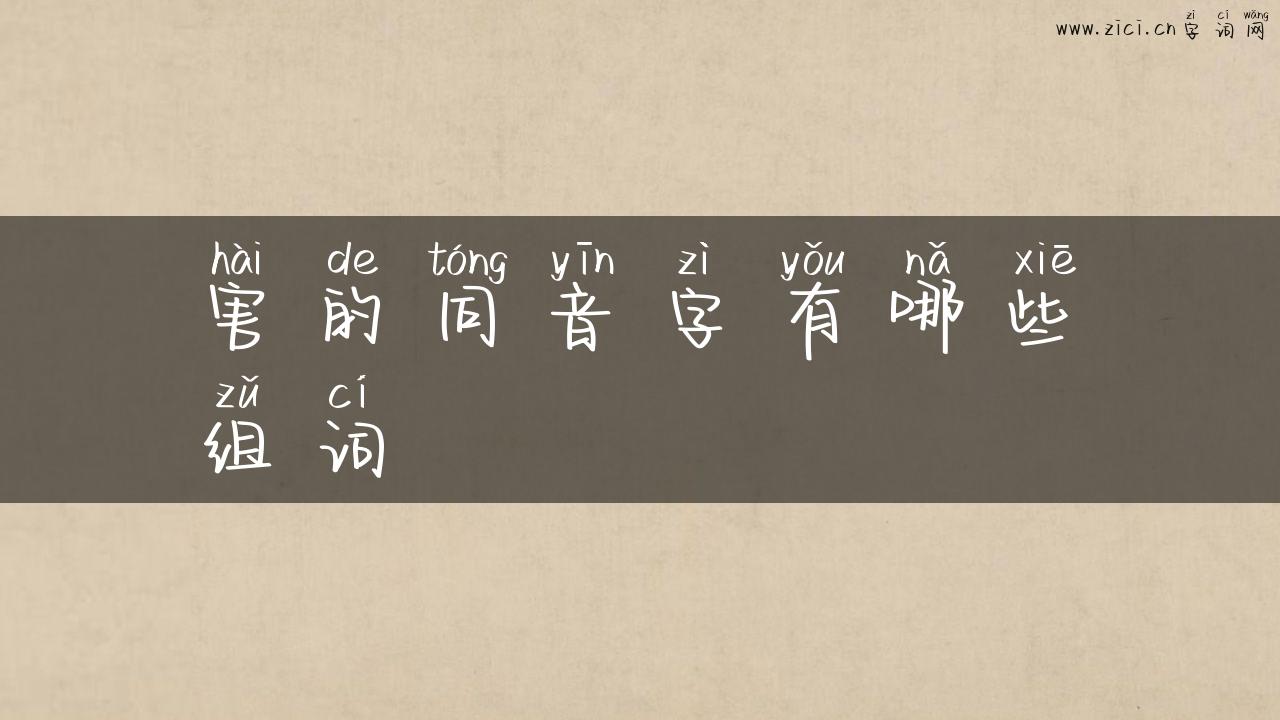 zì cí wǎng
www.zici.cn 字 词 网
hài de tóng yīn zì yǒu nǎ xiē
害 的 同 音 字 有 哪 些
zǔ cí
组 词